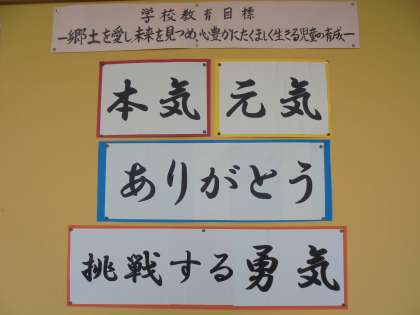 学校教育目標
―郷土を愛し未来を見つめ、心豊かにたくましく生きる児童の育成―
本気 元気
ありがとう
挑戦する勇気